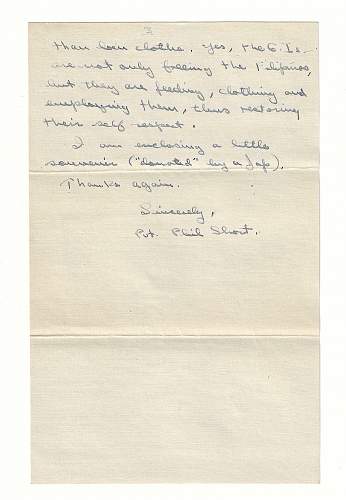 3
than loin clothe. Yes, the G.Is.
are not only freeing the Filipinos,
but they are feeding, clothing and
employing them, thus restoring
their self respect.
I am enclosing a little
souvenir ("donated" by a Jap).
Thanks again.
Sincerely,
Pvt. Phil Short.